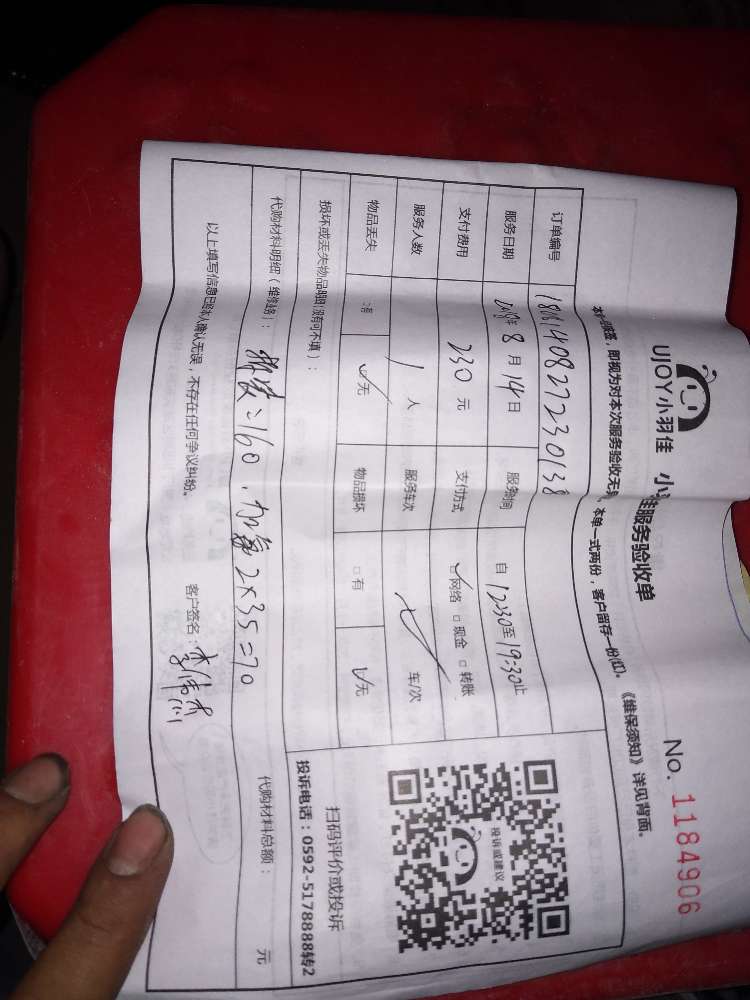 UJOY小羽佳
服务验收单
No. 1184906
即视为对本次服务验收无
本单一式两份，客户留存一份(红)。《维保须知》详见背面。
订单编号 18081408272230138
服务日期 2018年8月14日 自12:30至19:30止
支付费用 230元 支付方式 ☑网络 □现金 □转账
服务人数 1人 服务车次 车/次
物品丢失 ☑无 物品损坏 □有 ☑无
投诉或建议
损坏或丢失物品明细(没有可不填)：
扫码评价或投诉
投诉电话：0592-5178888转2
代购材料明细(维修类)： =160，加氟2×35=70
代购材料总额： 元
以上填写信息已经本人确认无误，不存在任何争议纠纷。 客户签名：